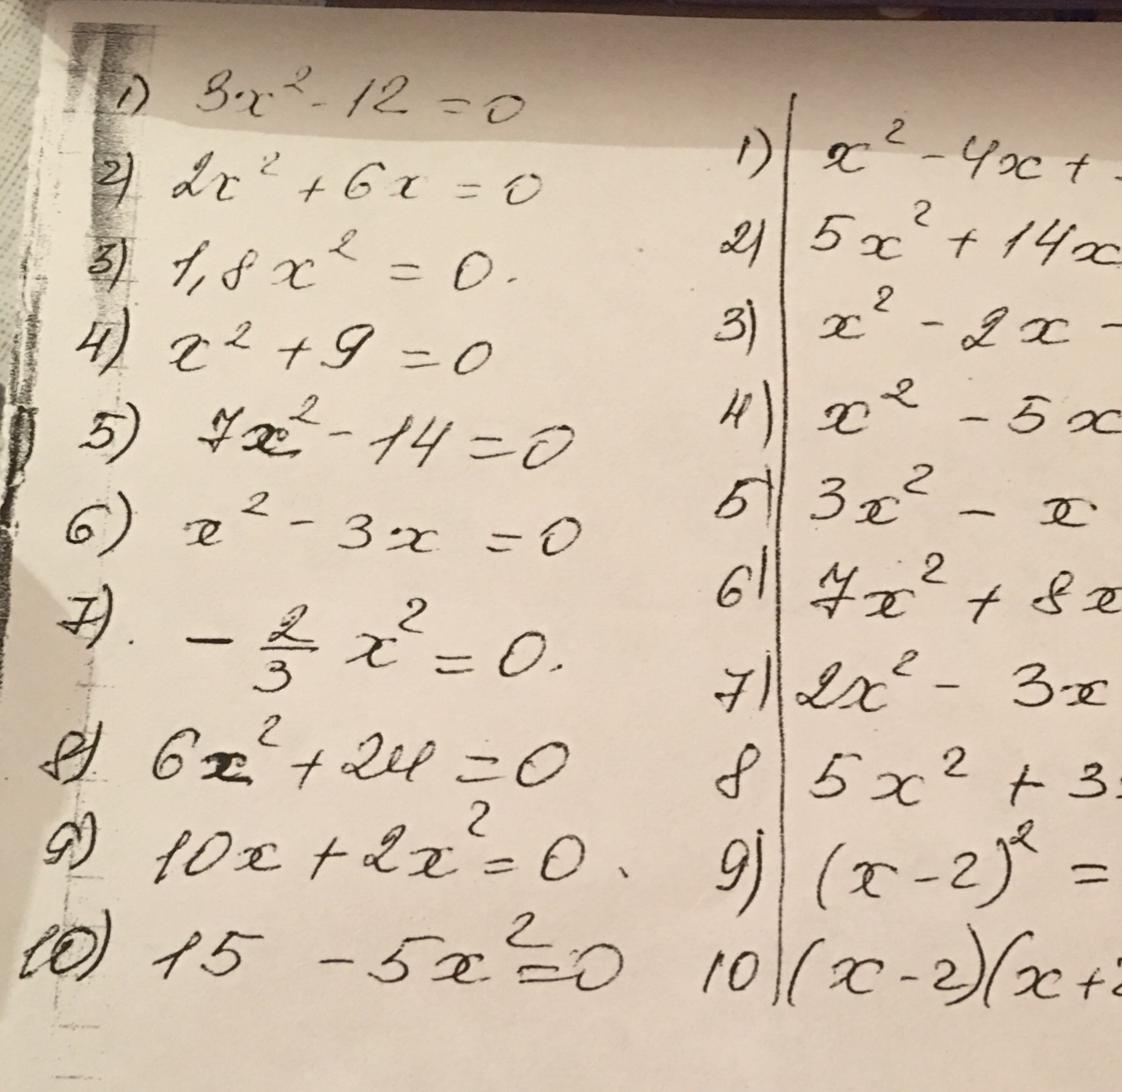 1) 3x² - 12 = 0
2) 2x² + 6x = 0
3) 1,8x² = 0.
4) x² + 9 = 0
5) 7x² - 14 = 0
6) x² - 3x = 0
7). - 2/3 x² = 0.
8) 6x² + 24 = 0
9) 10x + 2x² = 0.
10) 15 - 5x² = 0
1) x² - 4x +
2) 5x² + 14x
3) x² - 2x -
4) x² - 5x
5) 3x² - x
6) 7x² + 8x
7) 2x² - 3x
8 5x² + 3
9) (x - 2)² =
10 (x - 2)(x + 2